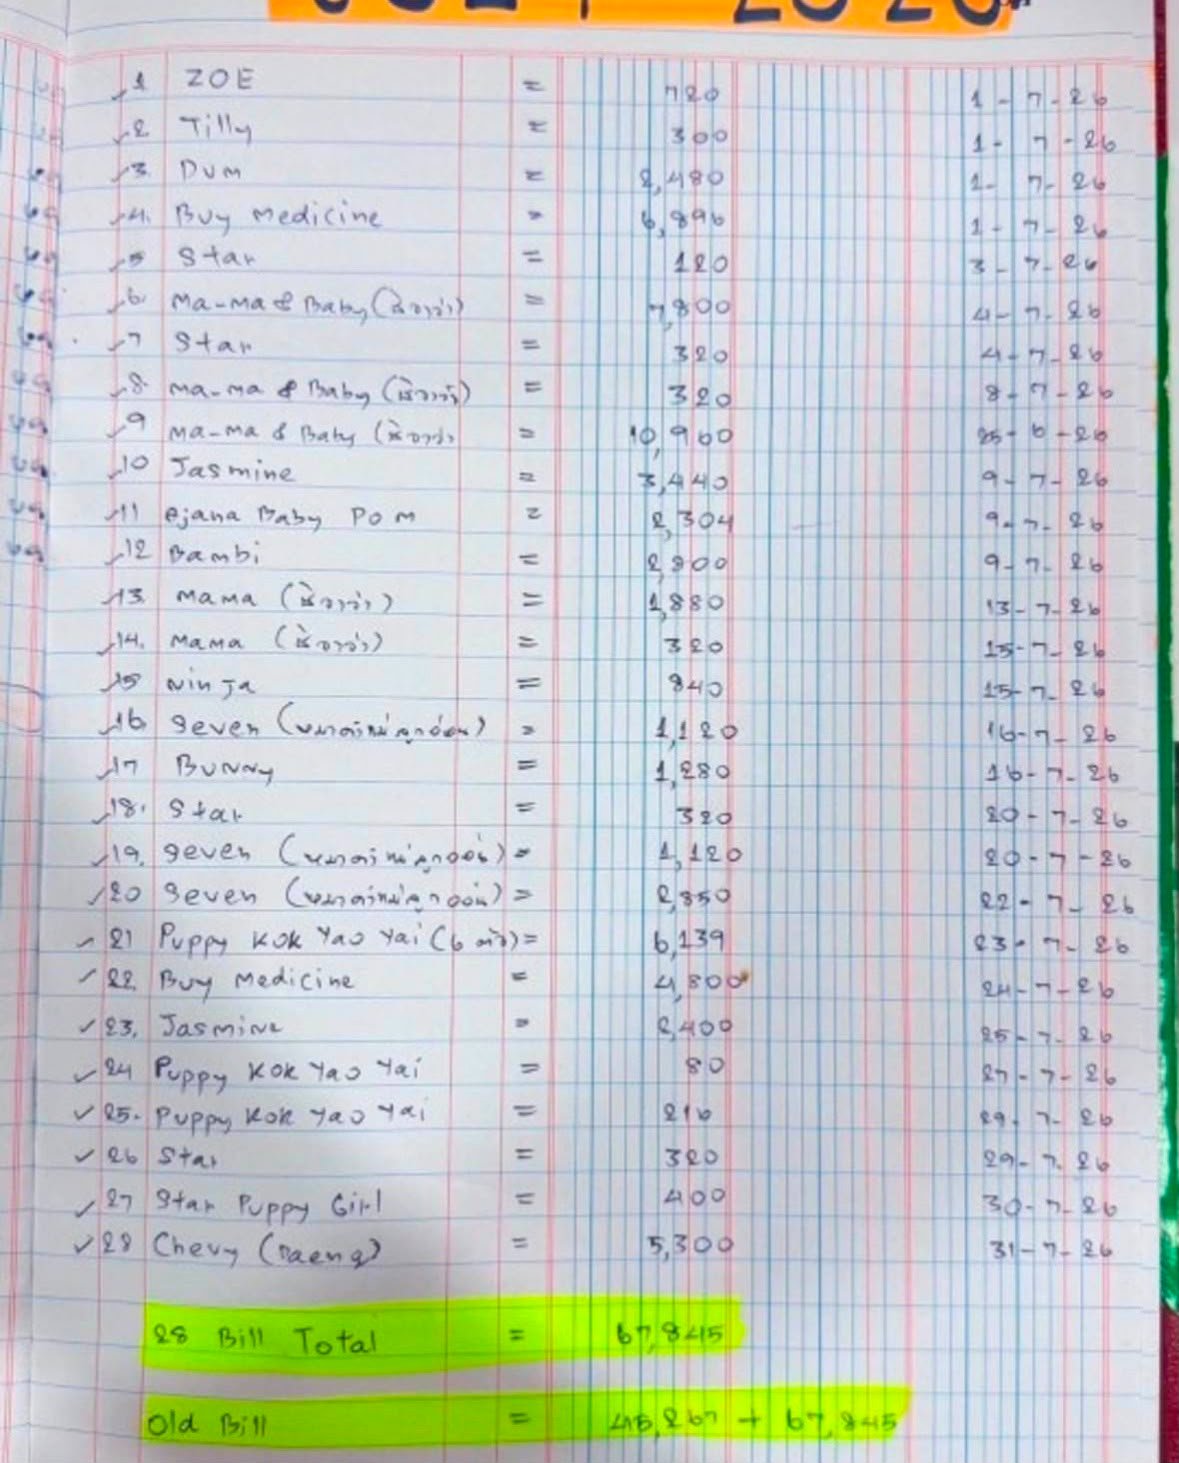 1 ZOE = 720 1-7-26
2 Tilly = 300 1-7-26
3. Dum = 2,480 1-7-26
4. Buy Medicine = 6,896 1-7-26
5 Star = 120 3-7-26
6. Ma-Ma & Baby = 7,800 4-7-26
7 Star = 320 4-7-26
8. Ma-Ma & Baby = 320 8-7-26
9 Ma-Ma & Baby = 10,960 25-6-26
10 Jasmine = 3,440 9-7-26
11 Ejana Baby POM = 2,304 9-7-26
12 Bambi = 2,800 9-7-26
13. Mama = 1,880 13-7-26
14. Mama = 320 15-7-26
15 Ninja = 840 15-7-26
16. Seven = 1,120 16-7-26
17 Bunny = 1,280 16-7-26
18. Star = 320 20-7-26
19. Seven = 1,120 20-7-26
20 Seven = 2,850 22-7-26
21 Puppy KOK Yao Yai (6 ตัว) = 6,139 23-7-26
22. Buy Medicine = 4,800 24-7-26
23. Jasmine = 2,400 25-7-26
24 Puppy KOK Yao Yai = 80 27-7-26
25. Puppy KOK Yao Yai = 216 29-7-26
26 Star = 320 29-7-26
27 Star Puppy Girl = 400 30-7-26
28 Chevy (Daeng) = 5,300 31-7-26
28 Bill Total = 67,845
Old Bill = 45,267 + 67,845